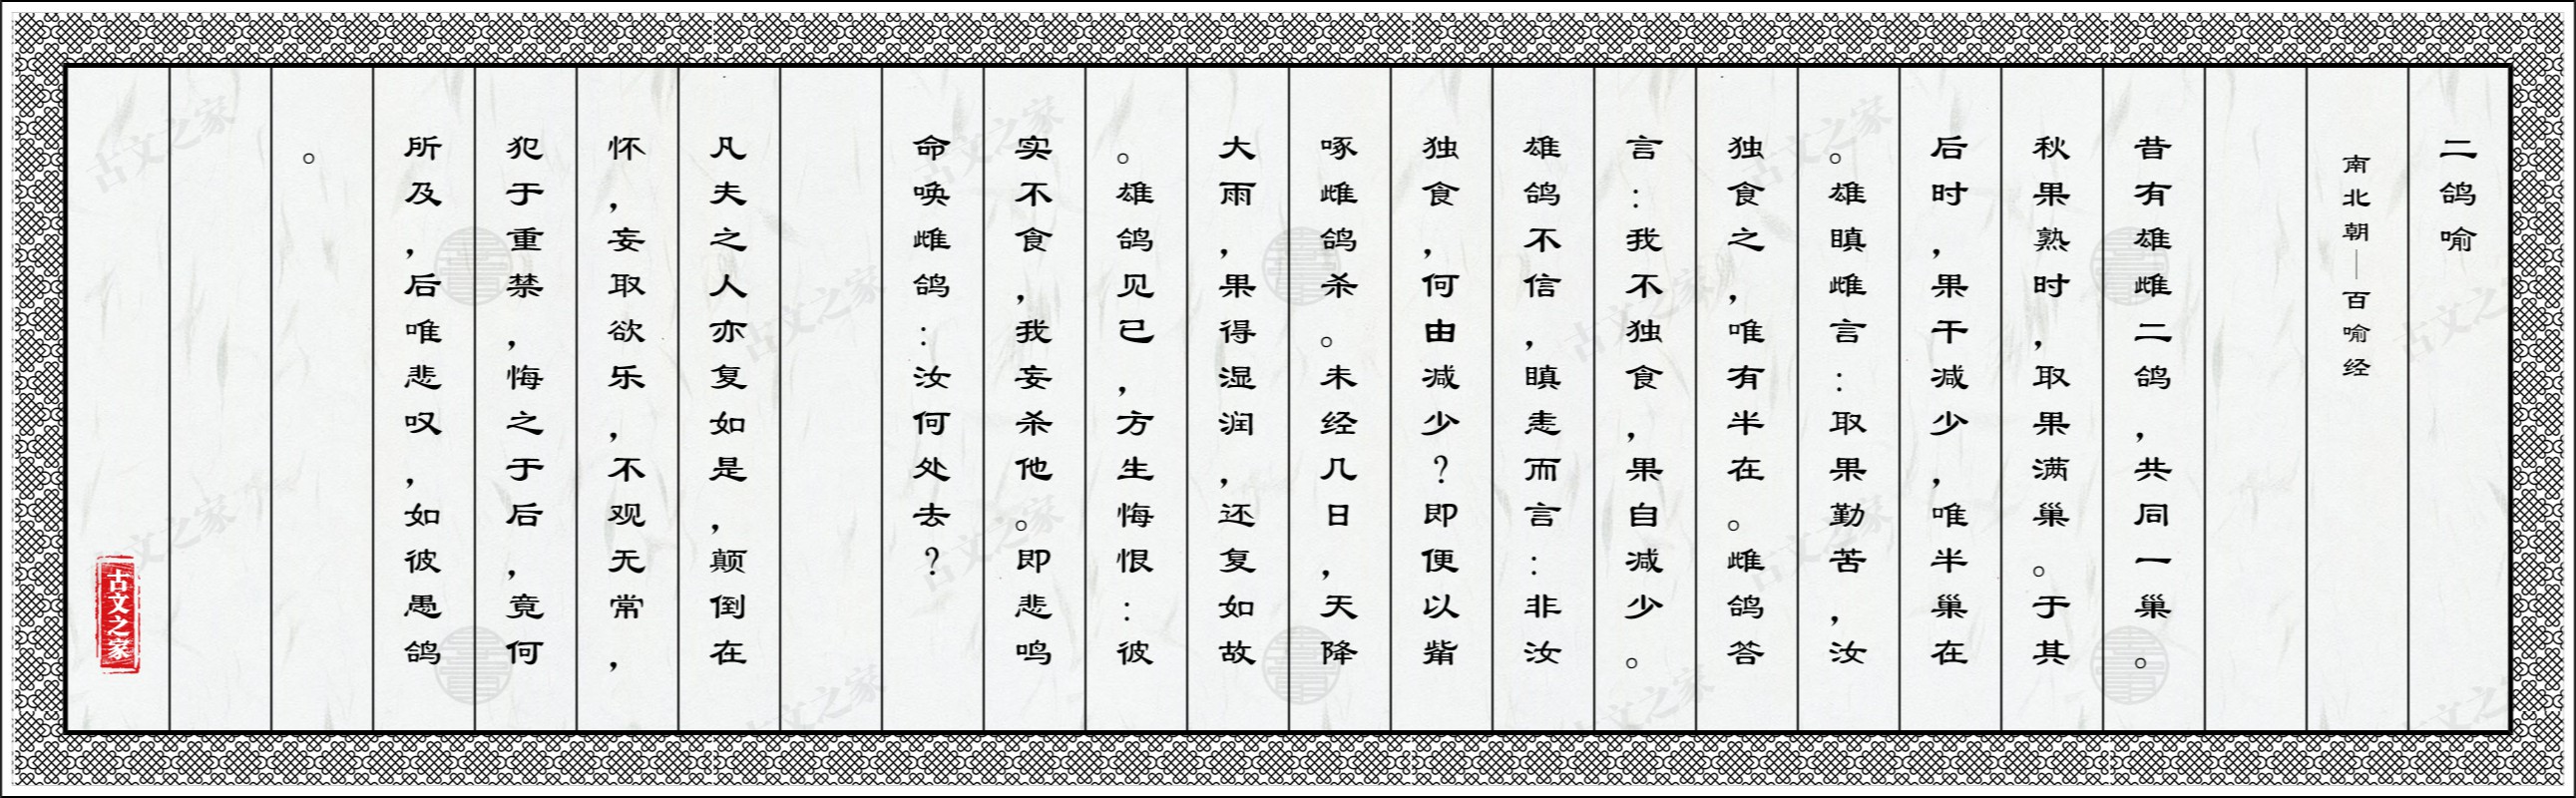 二鸽喻
南北朝—百喻经
昔有雄雌二鸽，共同一巢。
秋果熟时，取果满巢。于其
后时，果干减少，唯半巢在
。雄瞋雌言：取果勤苦，汝
独食之，唯有半在。雌鸽答
言：我不独食，果自减少。
雄鸽不信，瞋恚而言：非汝
独食，何由减少？即便以觜
啄雌鸽杀。未经几日，天降
大雨，果得湿润，还复如故
。雄鸽见已，方生悔恨：彼
实不食，我妄杀他。即悲鸣
命唤雌鸽：汝何处去？
凡夫之人亦复如是，颠倒在
怀，妄取欲乐，不观无常，
犯于重禁，悔之于后，竟何
所及，后唯悲叹，如彼愚鸽
。
古文之家